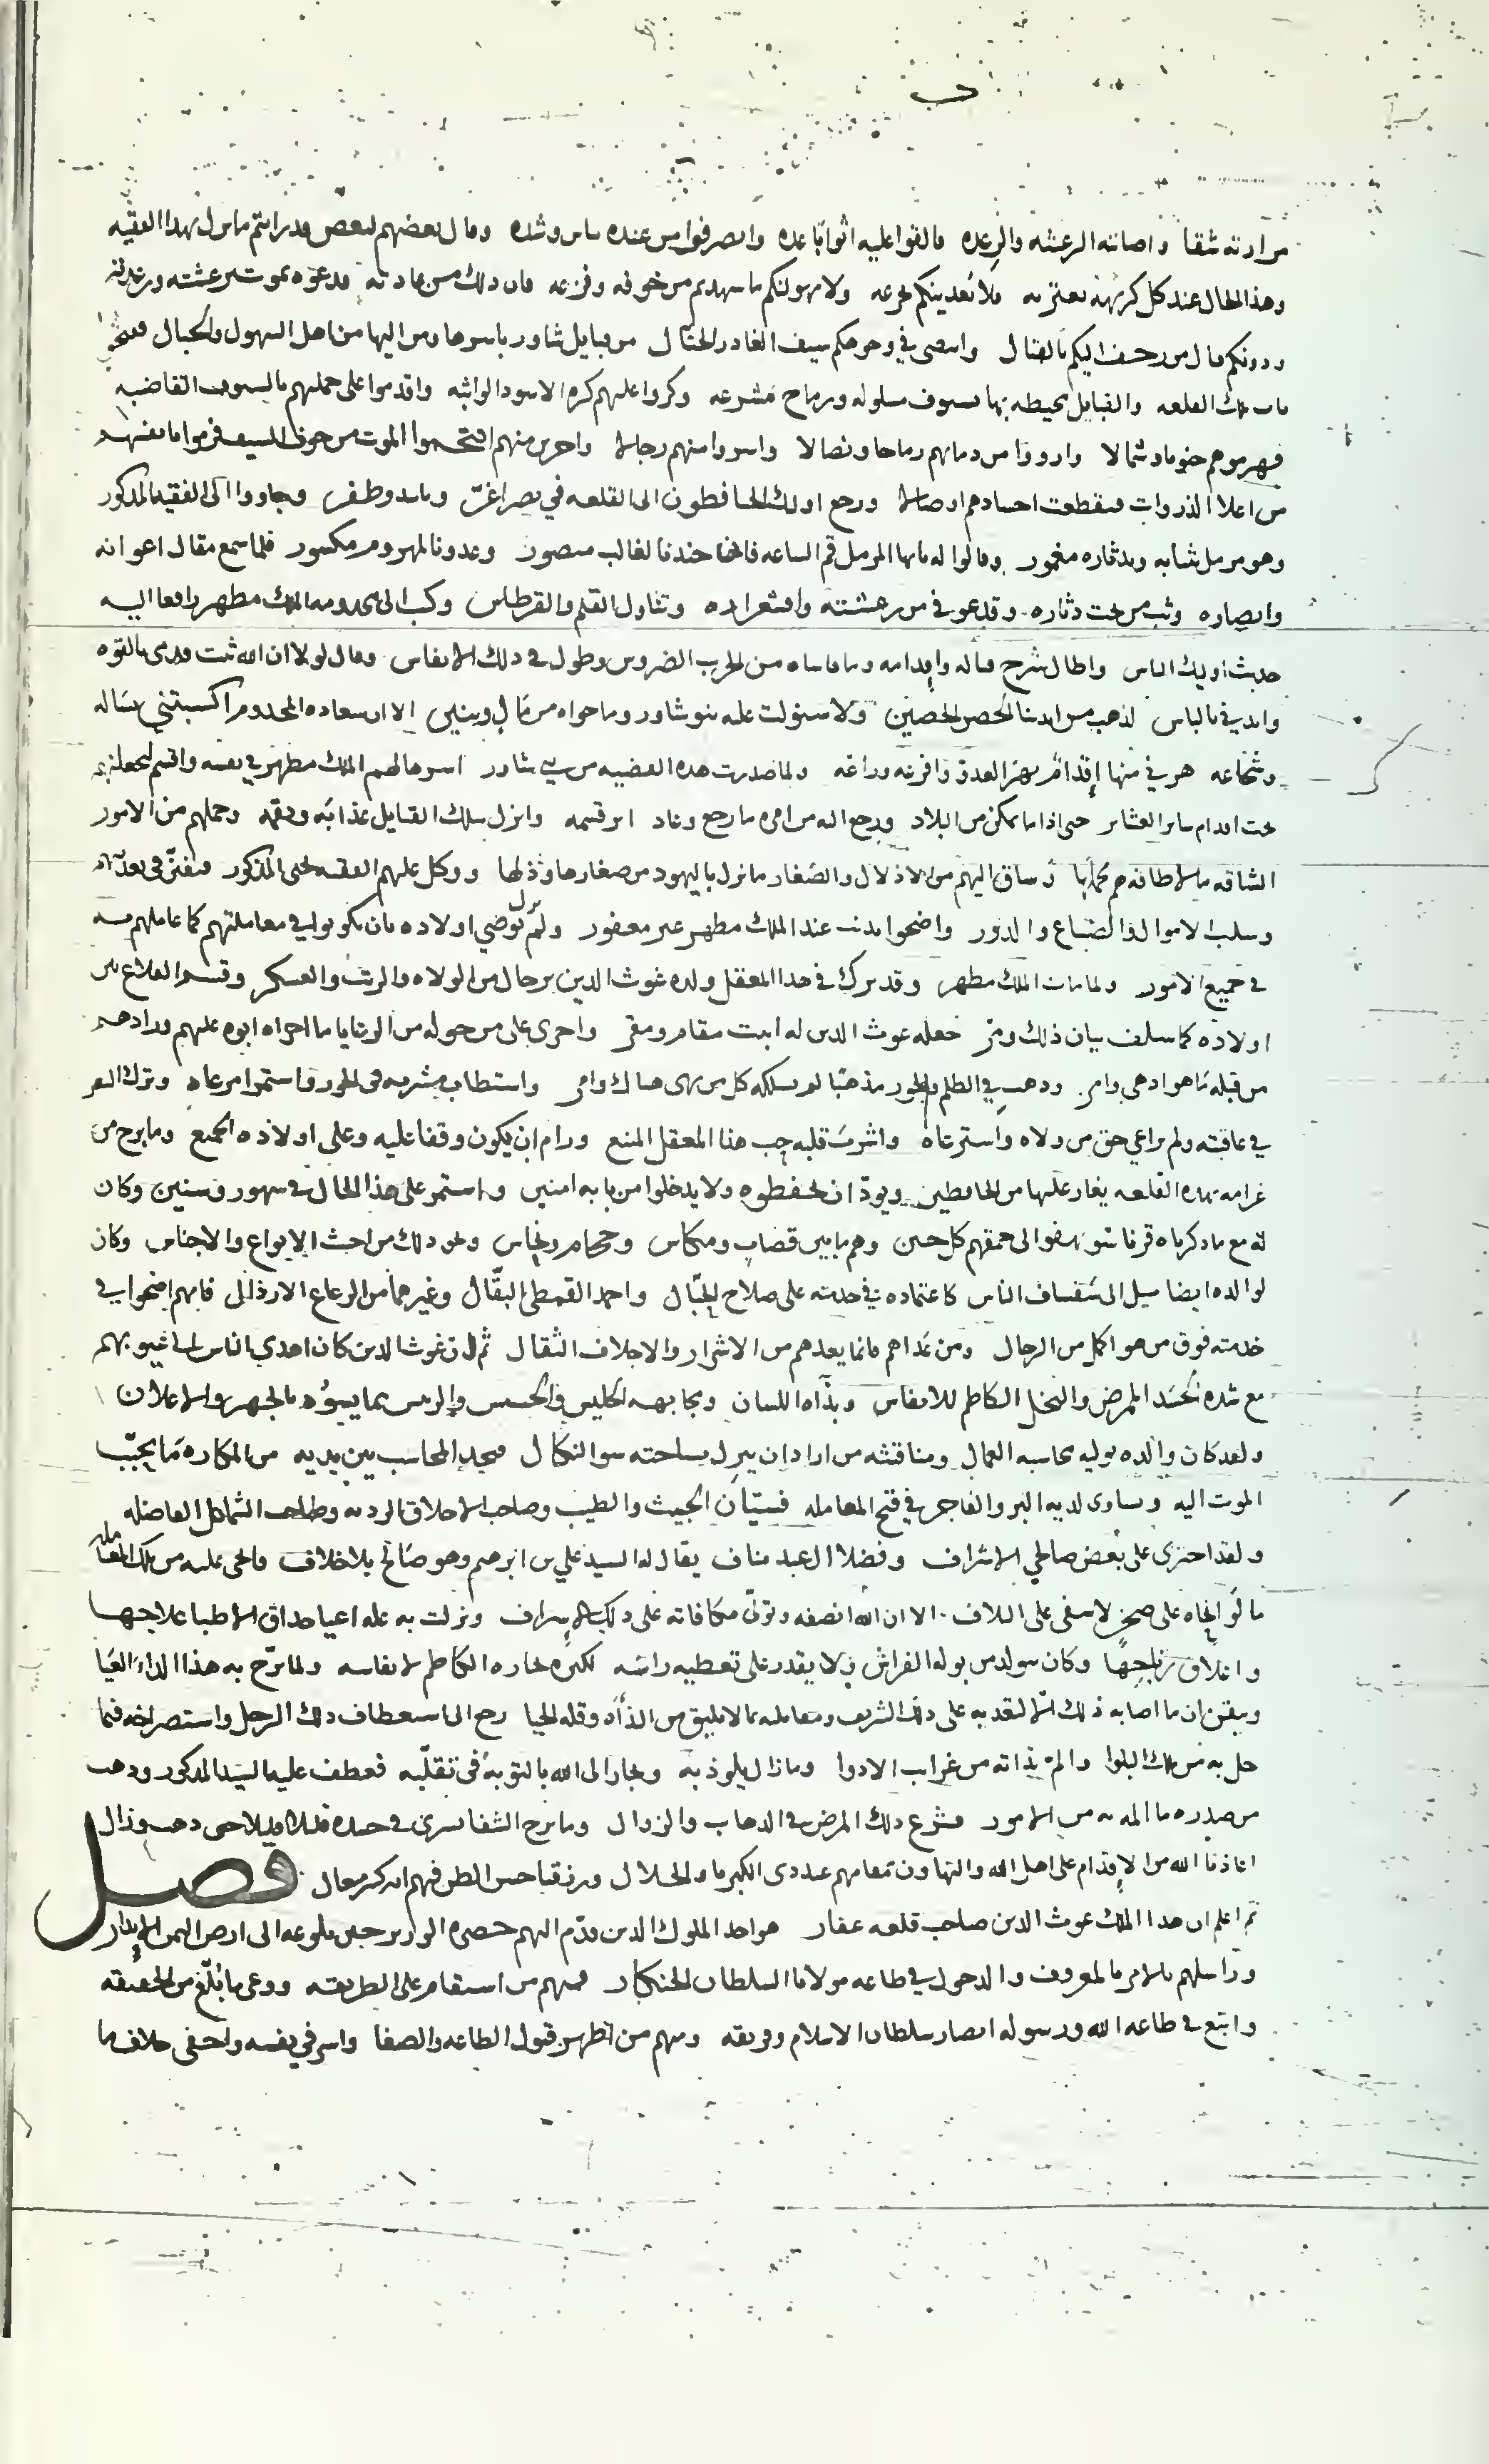 مرارته شقا واصابته الرعشه والرعده فالقوا عليه اثوابا عده وانصرفوا من عنده بباس وشده وقال بعضهم لبعض قد رايتم ما نزل بهذا الفقيه
وهذا الحال عند كل كريهة تعتريه فلا تعدينكم بجزعه ولا يهولنكم ما شهدتم من خوفه وفزعه فان ذلك من عادته فدعوه يموت برعشته ورعدته
ودونكم قتال من زحف اليكم بالقتال وانتضى في وجوهكم سيف الغادر الختال من قبايل شاور باسرها ومن اليها من اهل السهول والجبال ففتحوا
باب تلك القلعه والقبايل محيطه بها بسيوف مسلوله ورماح مشرعه وكروا عليهم كرة الاسود الواثبه واقدموا على حملهم بالسيوف القاضبه
فهزموهم جنوبا وشمالا وارووا من دمائهم رماحا ونصالا واسروا منهم رجالا واخرين منهم اقتحموا الموت من خوف السيف فرموا بانفسهم
من اعلا الذروات فتقطعت اجسادهم اوصالا ورجع اولئك الحافظون الى القلعه في نصر اغر وتاييد وظفر وجاووا الى الفقيه المذكور
وهو مزمل بثيابه وبدثاره مغمور وقالوا له يا ايها المزمل قم الساعه فانجا جندنا لغالب منصور وعدونا لمهزوم مكسور فلما سمع مقال اعوانه
وانصاره وثب من تحت دثاره وقد عوفي من رعشته واقشعراره وتناول القلم والقرطاس وكتب الى مخدومه الملك مطهر رافعا اليه
حديث اوليك الناس واطال شرح قتاله واقدامه وما قاساه من الحرب الضروس وطول في ذلك الانفاس وقال لولا ان الله ثبت قدمي بالقوه
وايدني بالباس لذهب من ايدينا الحصن الحصين ولاستولت عليه بنو شاور وما حواه من مال وبنين الا ان سعاده المخدوم اكسبتني بساله
وشجاعه هزني منها اقدام هزم العدو وافزعه وراعه ولما صدرت هذه القضيه من بني شاور اسرها لهم الملك مطهر في نفسه واقسم ليجعلنهم
تحت اقدام ساير العشاير حتى اذا ما تمكن من البلاد ورجع اليه من امره ما رجع وعاد ابر قسمه وانزل بتلك القبايل عذابه ونقمه وحملهم من الامور
الشاقه ما لا طاقه لهم بحملها وساق اليهم من الاذلال والصغار ما نزل باليهود من صغارها وذلها ووكل عليهم الفقيه يحيى المذكور فتفنن في تعذيبهم
وسلب الاموال والضياع والدور واضحوا بذنب عند الملك مطهر غير مغفور ولم يزل يوصي اولاده بان يكونوا في معاملتهم كما عاملهم به
في جميع الامور ولما مات الملك مطهر وقد ترك في هذا المعقل ولده غوث الدين برجال من الولاه والرتب والعسكر وقسم القلاع بين
اولاده كما سلف بيان ذلك ومر جعله غوث الدين له اثبت مقام ومقر واجرى على من حوله من الرعايا ما اجراه ابوه عليهم وزادهم
من قبله ما هو ادهى وامر وذهب في الظلم والجور مذهبا لم يسلكه كل من نهى هناك وامر واستطاب مشربه في الجور واستمرا مرعاه وترك النظر
في عاقبته ولم يراعي حق من ولاه واسترعاه واشربت قلبه حب هذا المعقل المنيع ورام ان يكون وقفا عليه وعلى اولاده الجميع وما برح من
غرامه بهذه القلعه يغار عليها من الحافظين ويود ان يحفظوه ولا يدخلوا من بابه امنين واستمر على هذا الحال في شهور وسنين وكان
له مع ما ذكرناه قرنا سوء يهفو الى حمقهم كل حين وهم ما بين قصاب ومكاس وحجام ونخاس ونحو ذلك من اخبث الانواع والاجناس وكان
لوالده ايضا ميل الى سفساف الناس كاعتماده في خدمته على صلاح الجبال واحمد القمطي البقال وغيرهما من الرعاع الارذال فانهم اضحوا في
خدمته فوق من هو اكمل من الرجال ومن عداهم فانما يعدهم من الاشرار والاجلاف الثقال ثم ان غوث الدين كان اهدى الناس الى عيوبهم
مع شده الحسد الممرض والبخل الكاظم للانفاس وبذاه اللسان ومجابهه الجليس والخسيس والريس بما يسوه بالجهر والاعلان
ولقد كان والده يوليه محاسبه العمال ومناقشه من اراد ان ينزل بساحته سو النكال فيجد المحاسب بين يديه من المكاره ما يحبب
الموت اليه وتساوى لديه البر والفاجر في قبح المعامله فسيان الخبيث والطيب وصاحب الاخلاق الرديه وصاحب الشمائل الفاضله
ولقد اجترى على بعض صالحي الاشراف وفضلا ال عبد مناف يقال له السيد علي بن ابرهيم وهو صالح بلا خلاف فانحى عليه من تلك المعامله
ما لو انحاه على صخر لاشفى على التلاف الا ان الله انصفه وتولى مكافاته على ذلك الاسراف ونزلت به عله اعيا حذاق الاطبا علاجها
واغلاق رتاجها وكان سولد من بوله الفراش ولا يقدر على تغطيه راسه لكثره بخاره الكاظم لانفاسه ولما برح به هذا الداء العيا
وتيقن ان ما اصابه ذلك الا لتعديه على ذلك الشريف ومعاملته بما لا يليق من البذاه وقله الحيا رجع الى استعطاف ذلك الرجل واستصراخه فيما
حل به من تلك البلوا والم بذاته من غرايب الادوا وما زال يلوذ به ويجار الى الله بالتوبه في تقلبه فعطف عليه السيد المذكور وذهب
من صدره ما الم به من الامور فشرع ذلك المرض في الذهاب والزوال وما برح الشفا يسري في جسده قليلا قليلا حتى ذهب وزال
اعاذنا الله من الاقدام على اهل الله والتهاون بمقامهم عند ذي الكبريا والجلال ورزقنا حسن الظن فيهم انه كريم متعال فصل
ثم اعلم ان هذا الملك غوث الدين صاحب قلعه عفار هو احد الملوك الذين قدم اليهم حضره الوزير حين بلوغه الى ارض اليمن الانذار
وراسلهم بالامر بالمعروف والدخول في طاعه مولانا السلطان الخنكار فمنهم من استقام على الطريقه ووعى ما بُلّغ من الحقيقه
واتبع في طاعه الله ورسوله انصار سلطان الاسلام وفريقه ومنهم من اظهر قبول الطاعه والصفا واسر في نفسه واخفى خلاف ما